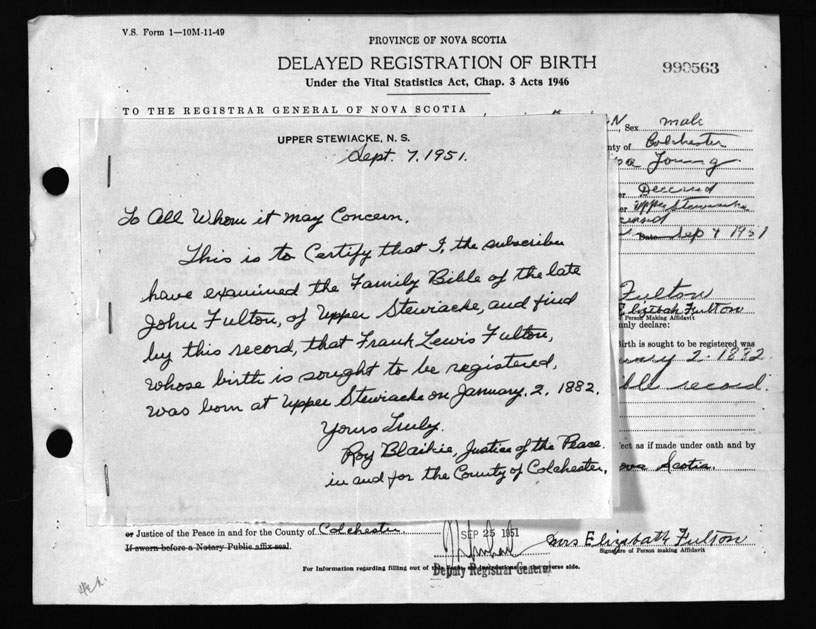 V.S. Form 1—10M-11-49
PROVINCE OF NOVA SCOTIA
DELAYED REGISTRATION OF BIRTH
990563
Under the Vital Statistics Act, Chap. 3 Acts 1946
TO THE REGISTRAR GENERAL OF NOVA SCOTIA
N, Sex male
nty of Colchester
Young
er Deceased
er Upper Stewiacke
Date Sep 7 1951
UPPER STEWIACKE, N. S.
Sept. 7, 1951.
To All Whom it may Concern.
This is to Certify that I, the subscriber
have examined the Family Bible of the late
John Fulton, of Upper Stewiacke, and find
by this record, that Frank Lewis Fulton,
whose birth is sought to be registered,
was born at Upper Stewiacke on January, 2, 1882.
Yours Truly.
Roy Blaikie, Justice of the Peace.
in and for the County of Colchester,
Fulton
Elizabeth Fulton
Person Making Affidavit
nly declare:
Birth is sought to be registered was
uary 2. 1882
ble record.
fect as if made under oath and by
ova Scotia.
or Justice of the Peace in and for the County of Colchester
If sworn before a Notary Public affix seal.
SEP 25 1951
Mrs Elizabeth Fulton
Signature of Person making Affidavit
Deputy Registrar General
For Information regarding filling out of reverse side.